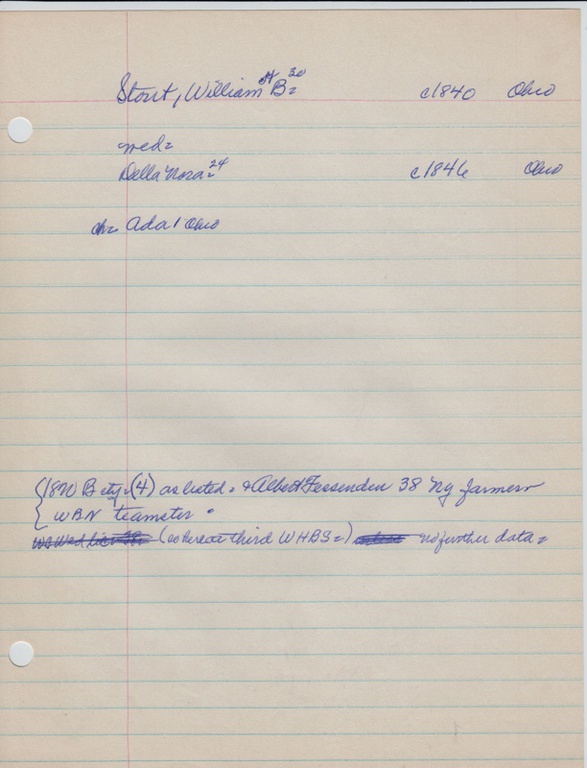 Stout, William H B= 30 c1840 Ohio
med=
Della Nora= 24 c1846 Ohio
ch= Ada 1 Ohio
(4) as listed= & Albert Fessenden 38 Ny farmer
WBN teamster
third WHBS=) no further data=